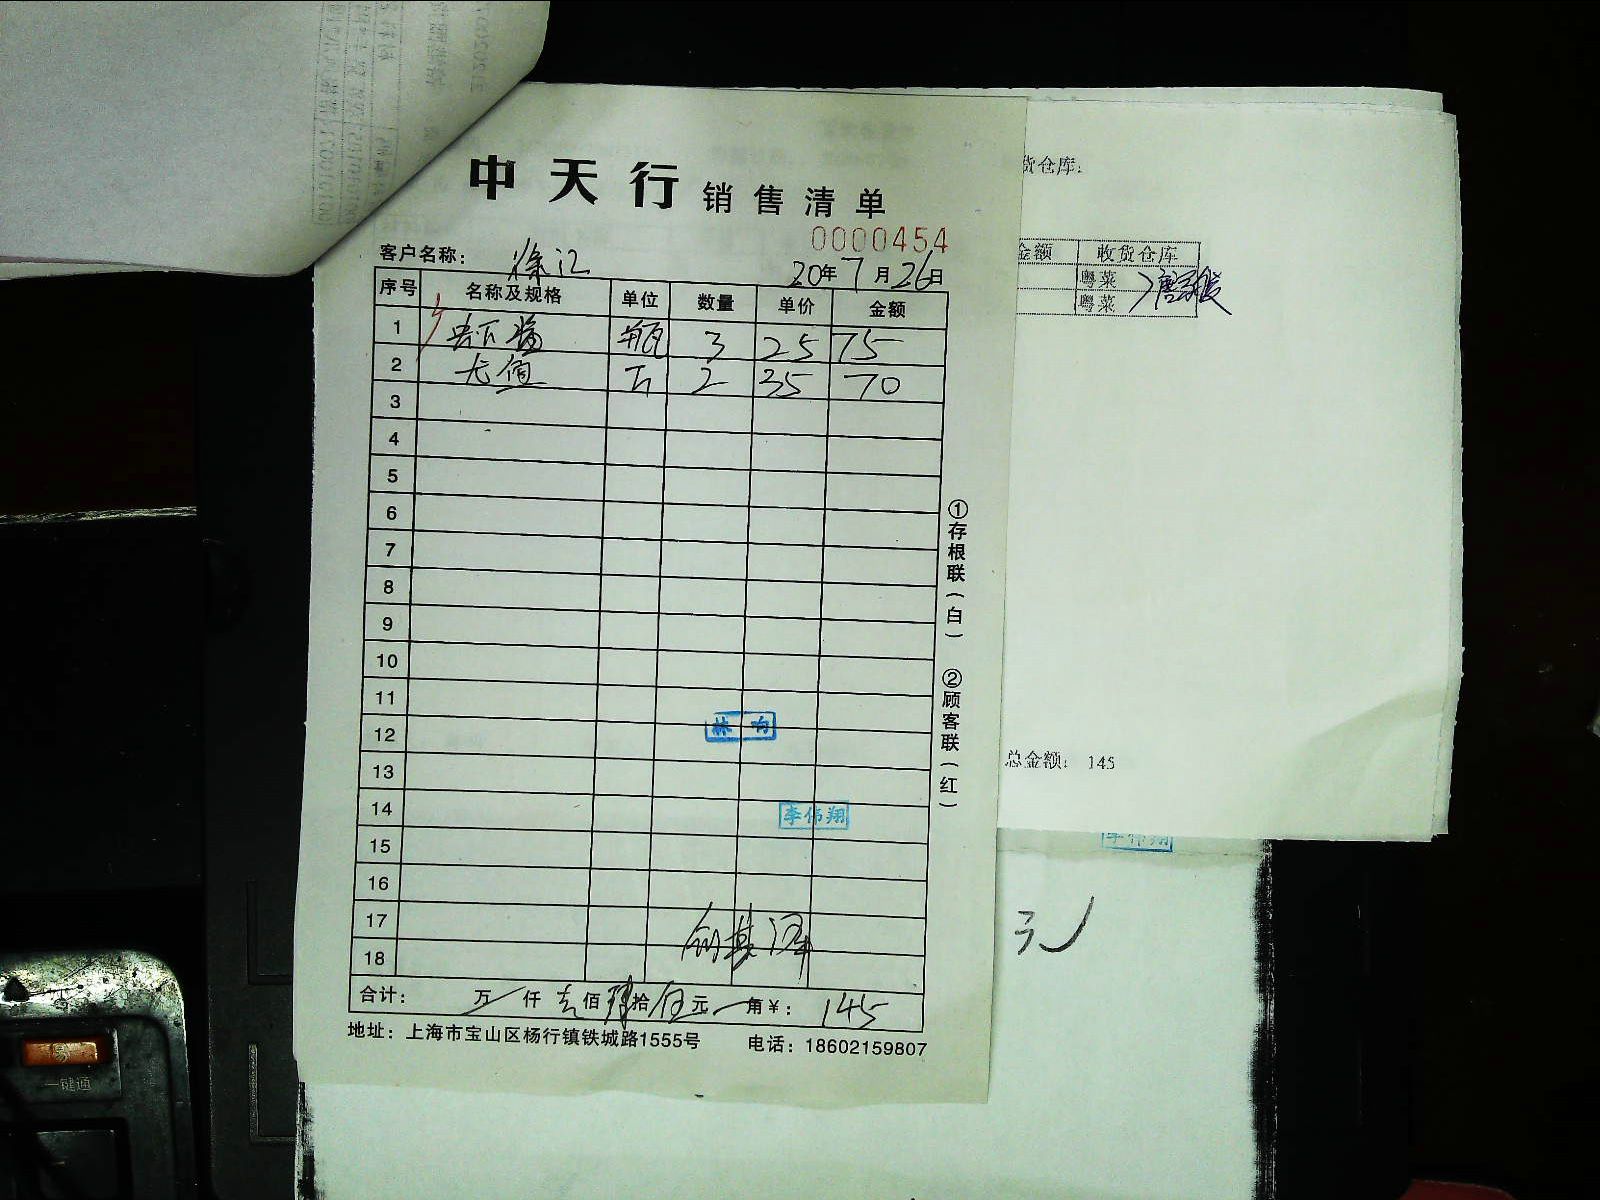 中天行 销售清单
0000454
客户名称： 徐汇
20年 7月 26日
序号 名称及规格 单位 数量 单价 金额
1 瓶 3 25 75
2 2 35 70
3
4
5
6
7
8
9
10
11
12
13
14
15
16
17
18
林 向
李伟翔
合计： 万 仟 壹佰 肆拾 伍元 角￥： 145
地址：上海市宝山区杨行镇铁城路1555号 电话：18602159807
①存根联（白）
②顾客联（红）
货仓库：
金额 收货仓库
粤菜
粤菜
总金额： 145
李伟翔
元
一键通